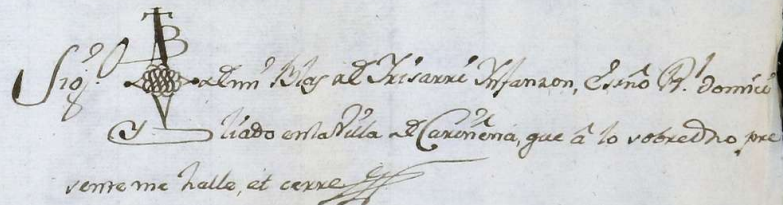 Sig no de mi Blas de Yrisarri Infanzon, Essno Rl. domici
liado en la Villa de Cariñena, que â lo sobredho pre
sente me halle, et cerre